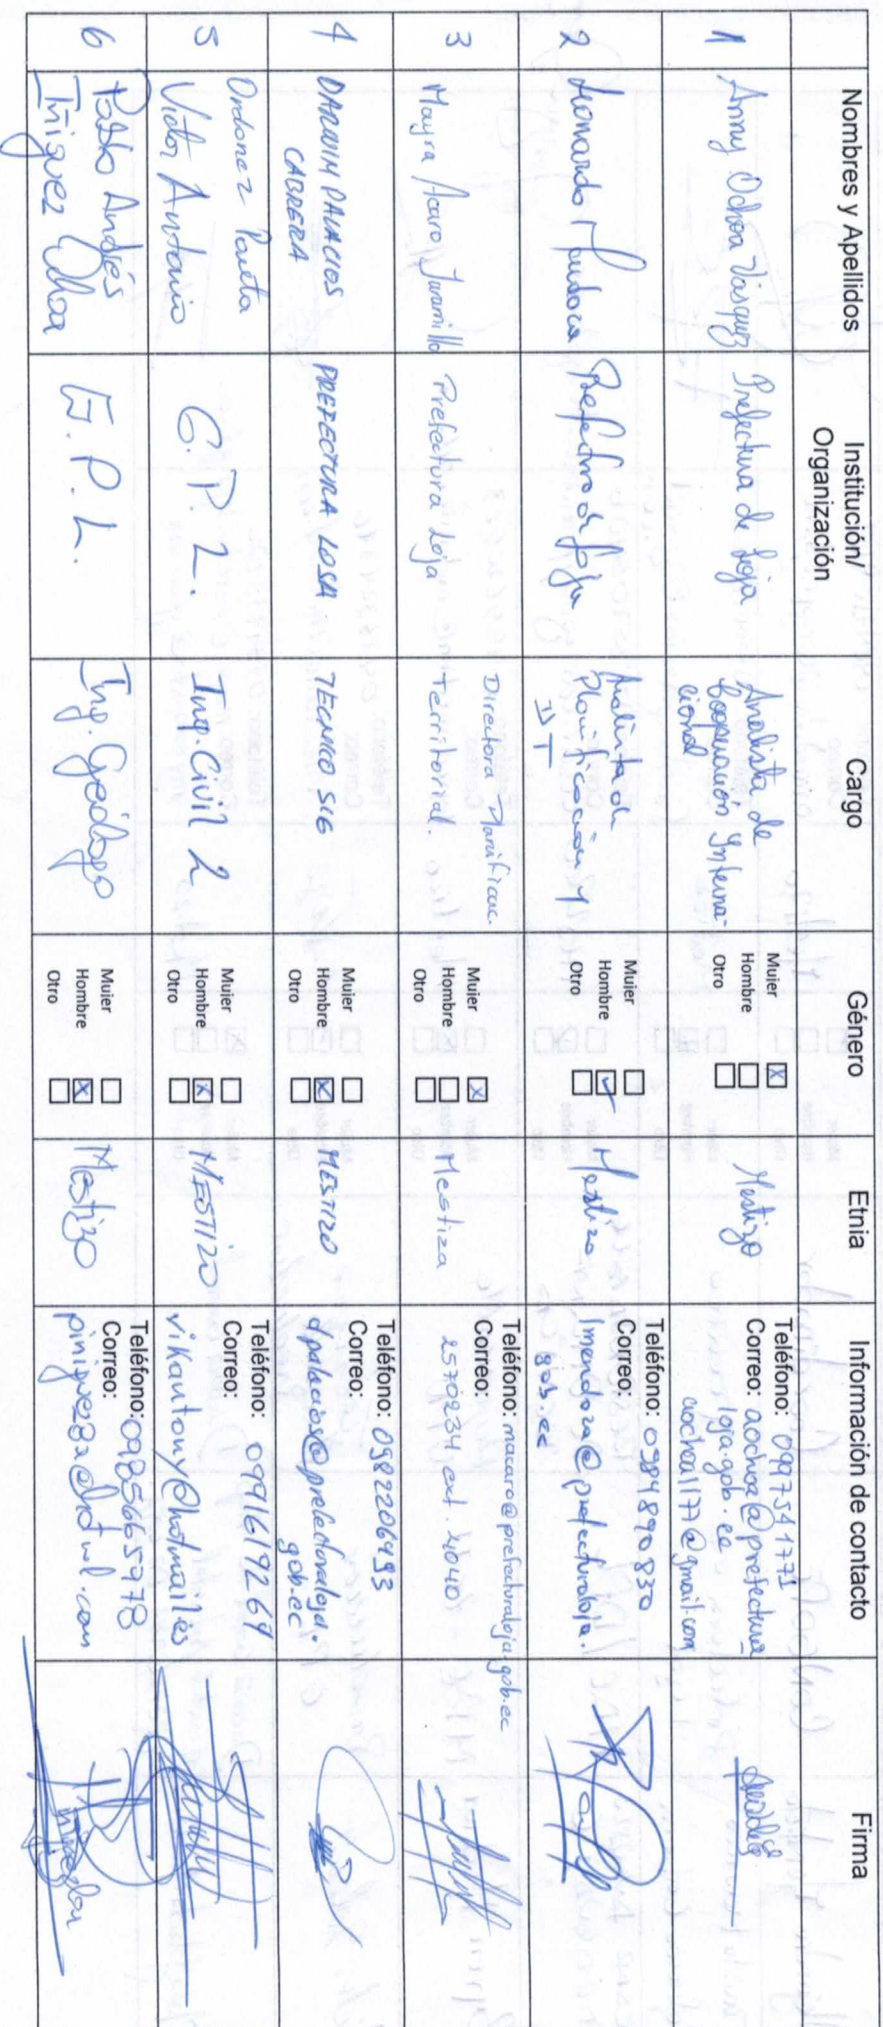 Nombres y Apellidos
Institución/
Organización
Cargo
Género
Etnia
Información de contacto
Firma
1
Anny Ochoa Vásquez
Prefectura de Loja
Analista de
Cooperación Interna-
cional
Mujer ☒
Hombre ☐
Otro ☐
Mestizo
Teléfono: 0997541771
Correo: aochoa@prefectura
loja.gob.ec
aochoa1177@gmail.com
2
Leonardo Mendoza
Prefectura de Loja
Analista de
Planificación y
DT
Mujer ☐
Hombre ☑
Otro ☐
Mestizo
Teléfono: 0984890830
Correo:
lmendoza@prefecturaloja.
gob.ec
3
Mayra Acaro Jaramillo
Prefectura Loja
Directora Planificac.
territorial.
Mujer ☒
Hombre ☐
Otro ☐
Mestiza
Teléfono: macaro@prefecturaloja.gob.ec
Correo:
2570234 ext. 4040
4
DARWIN PALACIOS
CABRERA
PREFECTURA LOJA
TECNICO SIG
Mujer ☐
Hombre ☒
Otro ☐
MESTIZO
Teléfono: 0982206493
Correo:
dpalacios@prefecturaloja.
gob.ec
5
Ordonez Pauta
Victor Antonio
G. P. L.
Ing. Civil 2
Mujer ☐
Hombre ☒
Otro ☐
MESTIZO
Teléfono: 0991619269
Correo:
vikantony@hotmail.es
6
Pablo Andrés
Iñiguez Ochoa
G. P. L.
Ing. Geólogo
Mujer ☐
Hombre ☒
Otro ☐
Mestizo
Teléfono: 0985665978
Correo: